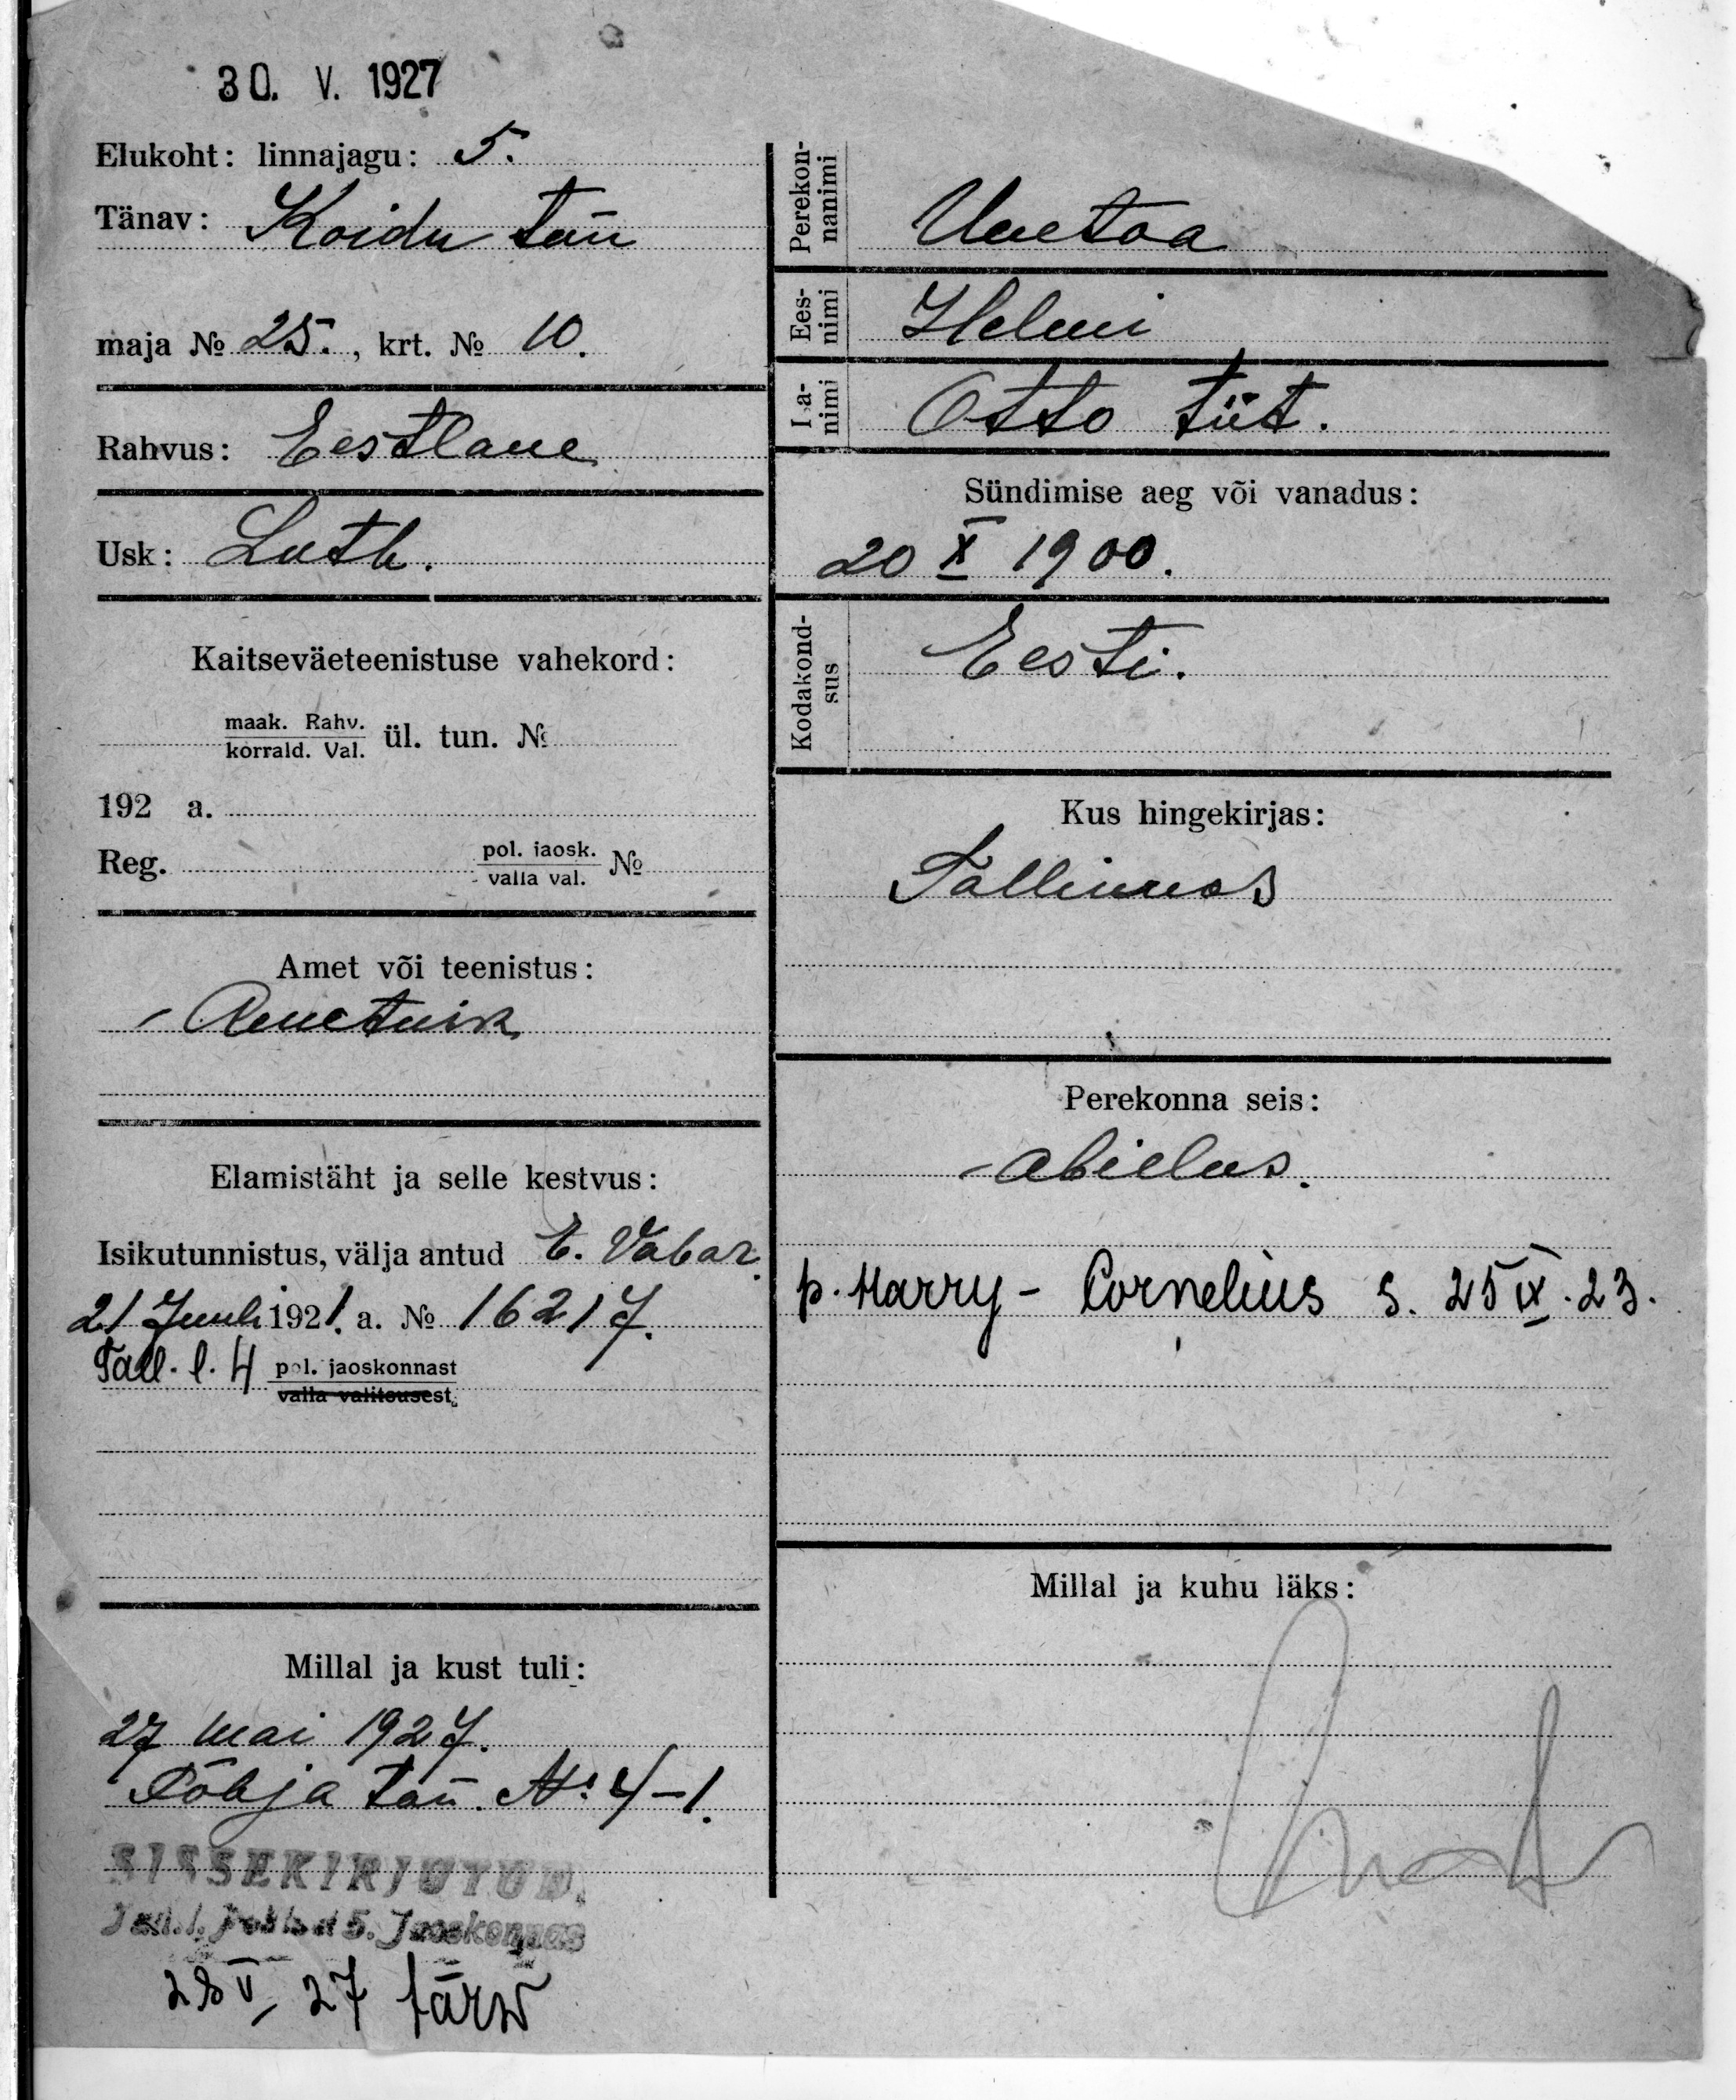 30. V. 1927
Elukoht: linnajagu: 5.
Tänav: Koidu tän
maja № 25., krt. № 10.
Rahvus: Eestlane
Usk: Luth.
Kaitseväeteenistuse vahekord:
maak. Rahv.
korrald. Val. ül. tun. №
192 a.
Reg. pol. jaosk.
valla val. №
Amet või teenistus:
Ametnik
Elamistäht ja selle kestvus:
Isikutunnistus, välja antud E. Vabar.
21 Juuli 1921. a. № 16217.
Tall. l. 4 pol. jaoskonnast
valla valitsusest.
Millal ja kust tuli:
27 mai 1927.
Põhja tän. № 4-1.
SISSEKIRJUTUD.
Tall. l. politsei 5. Jaoskonnas
28 V 27
Perekon-
nanimi
Uuetoa
Ees-
nimi
Helmi
Isa-
nimi
Otto tüt.
Sündimise aeg või vanadus:
20 X 1900.
Kodakond-
sus
Eesti.
Kus hingekirjas:
Tallinnas
Perekonna seis:
abielus.
p. Harry - Cornelius s. 25 IX. 23.
Millal ja kuhu läks: